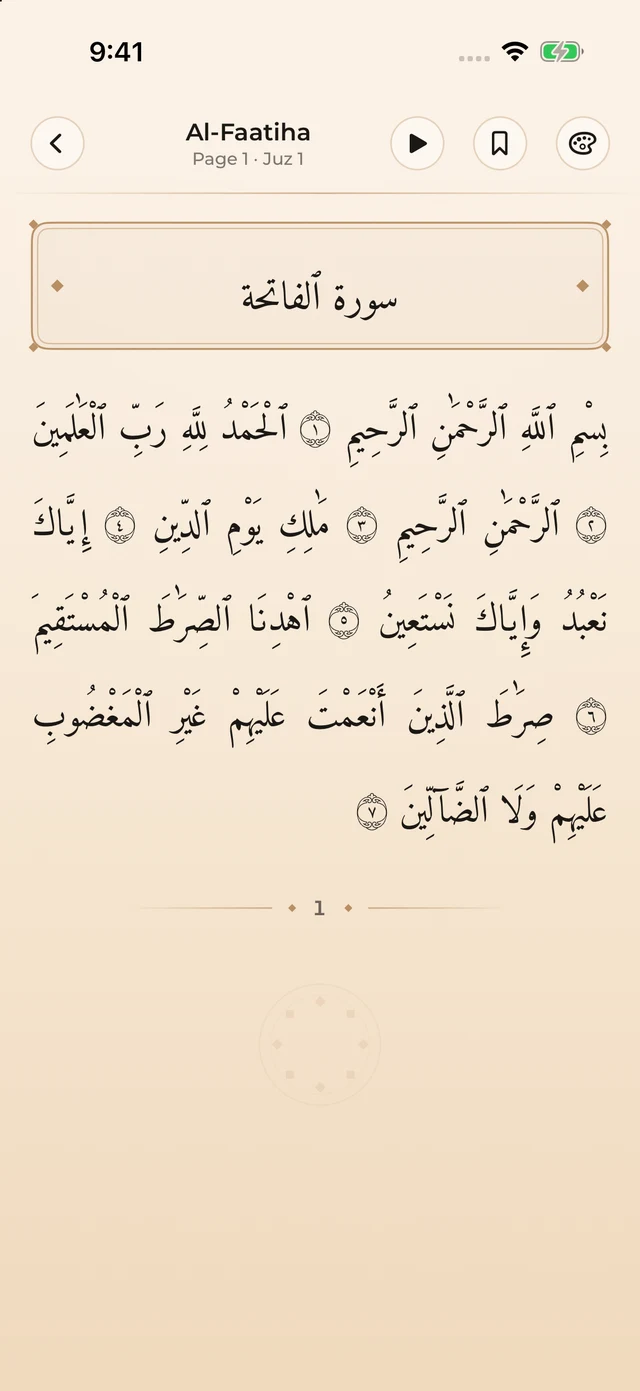 9:41
Al-Faatiha
Page 1 · Juz 1
سورة ٱلفاتحة
بِسْمِ ٱللَّهِ ٱلرَّحْمَٰنِ ٱلرَّحِيمِ ١ ٱلْحَمْدُ لِلَّهِ رَبِّ ٱلْعَٰلَمِينَ
٢ ٱلرَّحْمَٰنِ ٱلرَّحِيمِ ٣ مَٰلِكِ يَوْمِ ٱلدِّينِ ٤ إِيَّاكَ
نَعْبُدُ وَإِيَّاكَ نَسْتَعِينُ ٥ ٱهْدِنَا ٱلصِّرَٰطَ ٱلْمُسْتَقِيمَ
٦ صِرَٰطَ ٱلَّذِينَ أَنْعَمْتَ عَلَيْهِمْ غَيْرِ ٱلْمَغْضُوبِ
عَلَيْهِمْ وَلَا ٱلضَّآلِّينَ ٧
1